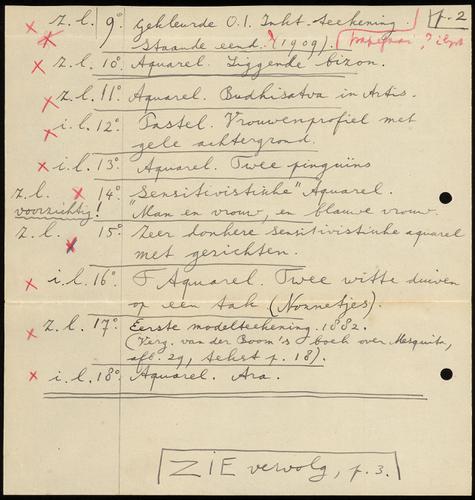 p. 2
x z.l. 9° Gekleurde O.I. Inkt teekening.
Staande eend. (1909).
x z.l. 10° Aquarel. Liggende bizon.
x z.l. 11° Aquarel. Budhisatva in Artis.
x i.l. 12° Pastel. Vrouwenprofiel met
gele achtergrond.
x i.l. 13° Aquarel. Twee pinguins
z.l. x 14° Sensitivistische" Aquarel.
voorzichtig! "Man en vrouw, en blauwe vrouw.
z.l. x 15° Zeer donkere sensitivistische aquarel
met gezichten.
x i.l. 16° F Aquarel. Twee witte duiven
op een tak (Nonnetjes).
x z.l. 17° Eerste modelteekening. 1882.
(Verg. van der Boom's boek over Mesquita,
afb. 29, tekst p. 18).
x i.l. 18° Aquarel. Ara.
ZIE vervolg, p. 3.